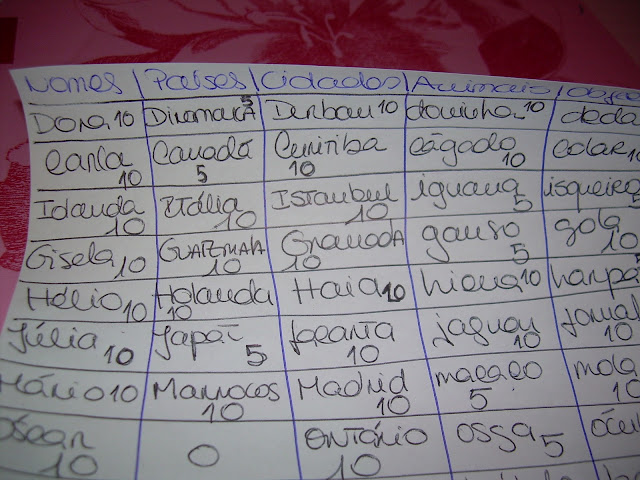 Nomes Países Cidades Animais
Dora 10 Dinamarca 5 Denbau 10 doninha 10 deda
Carla 10 Canadá 5 Curitiba 10 Cágado 10 Colar 10
Iolanda 10 Itália 10 Istanbul 10 iguana 5 isqueiro 5
Gisela 10 GUATEMALA 10 Granada 10 ganso 5 gola 10
Hélio 10 Holanda 10 Haia 10 hiena 10 harpa
Júlia 10 Japão 5 10 jaguar 10 jornal 10
Mário 10 Marrocos 10 Madrid 10 macaco 5 mola 10
Óscar 10 0 Ontário 10 ossga 5